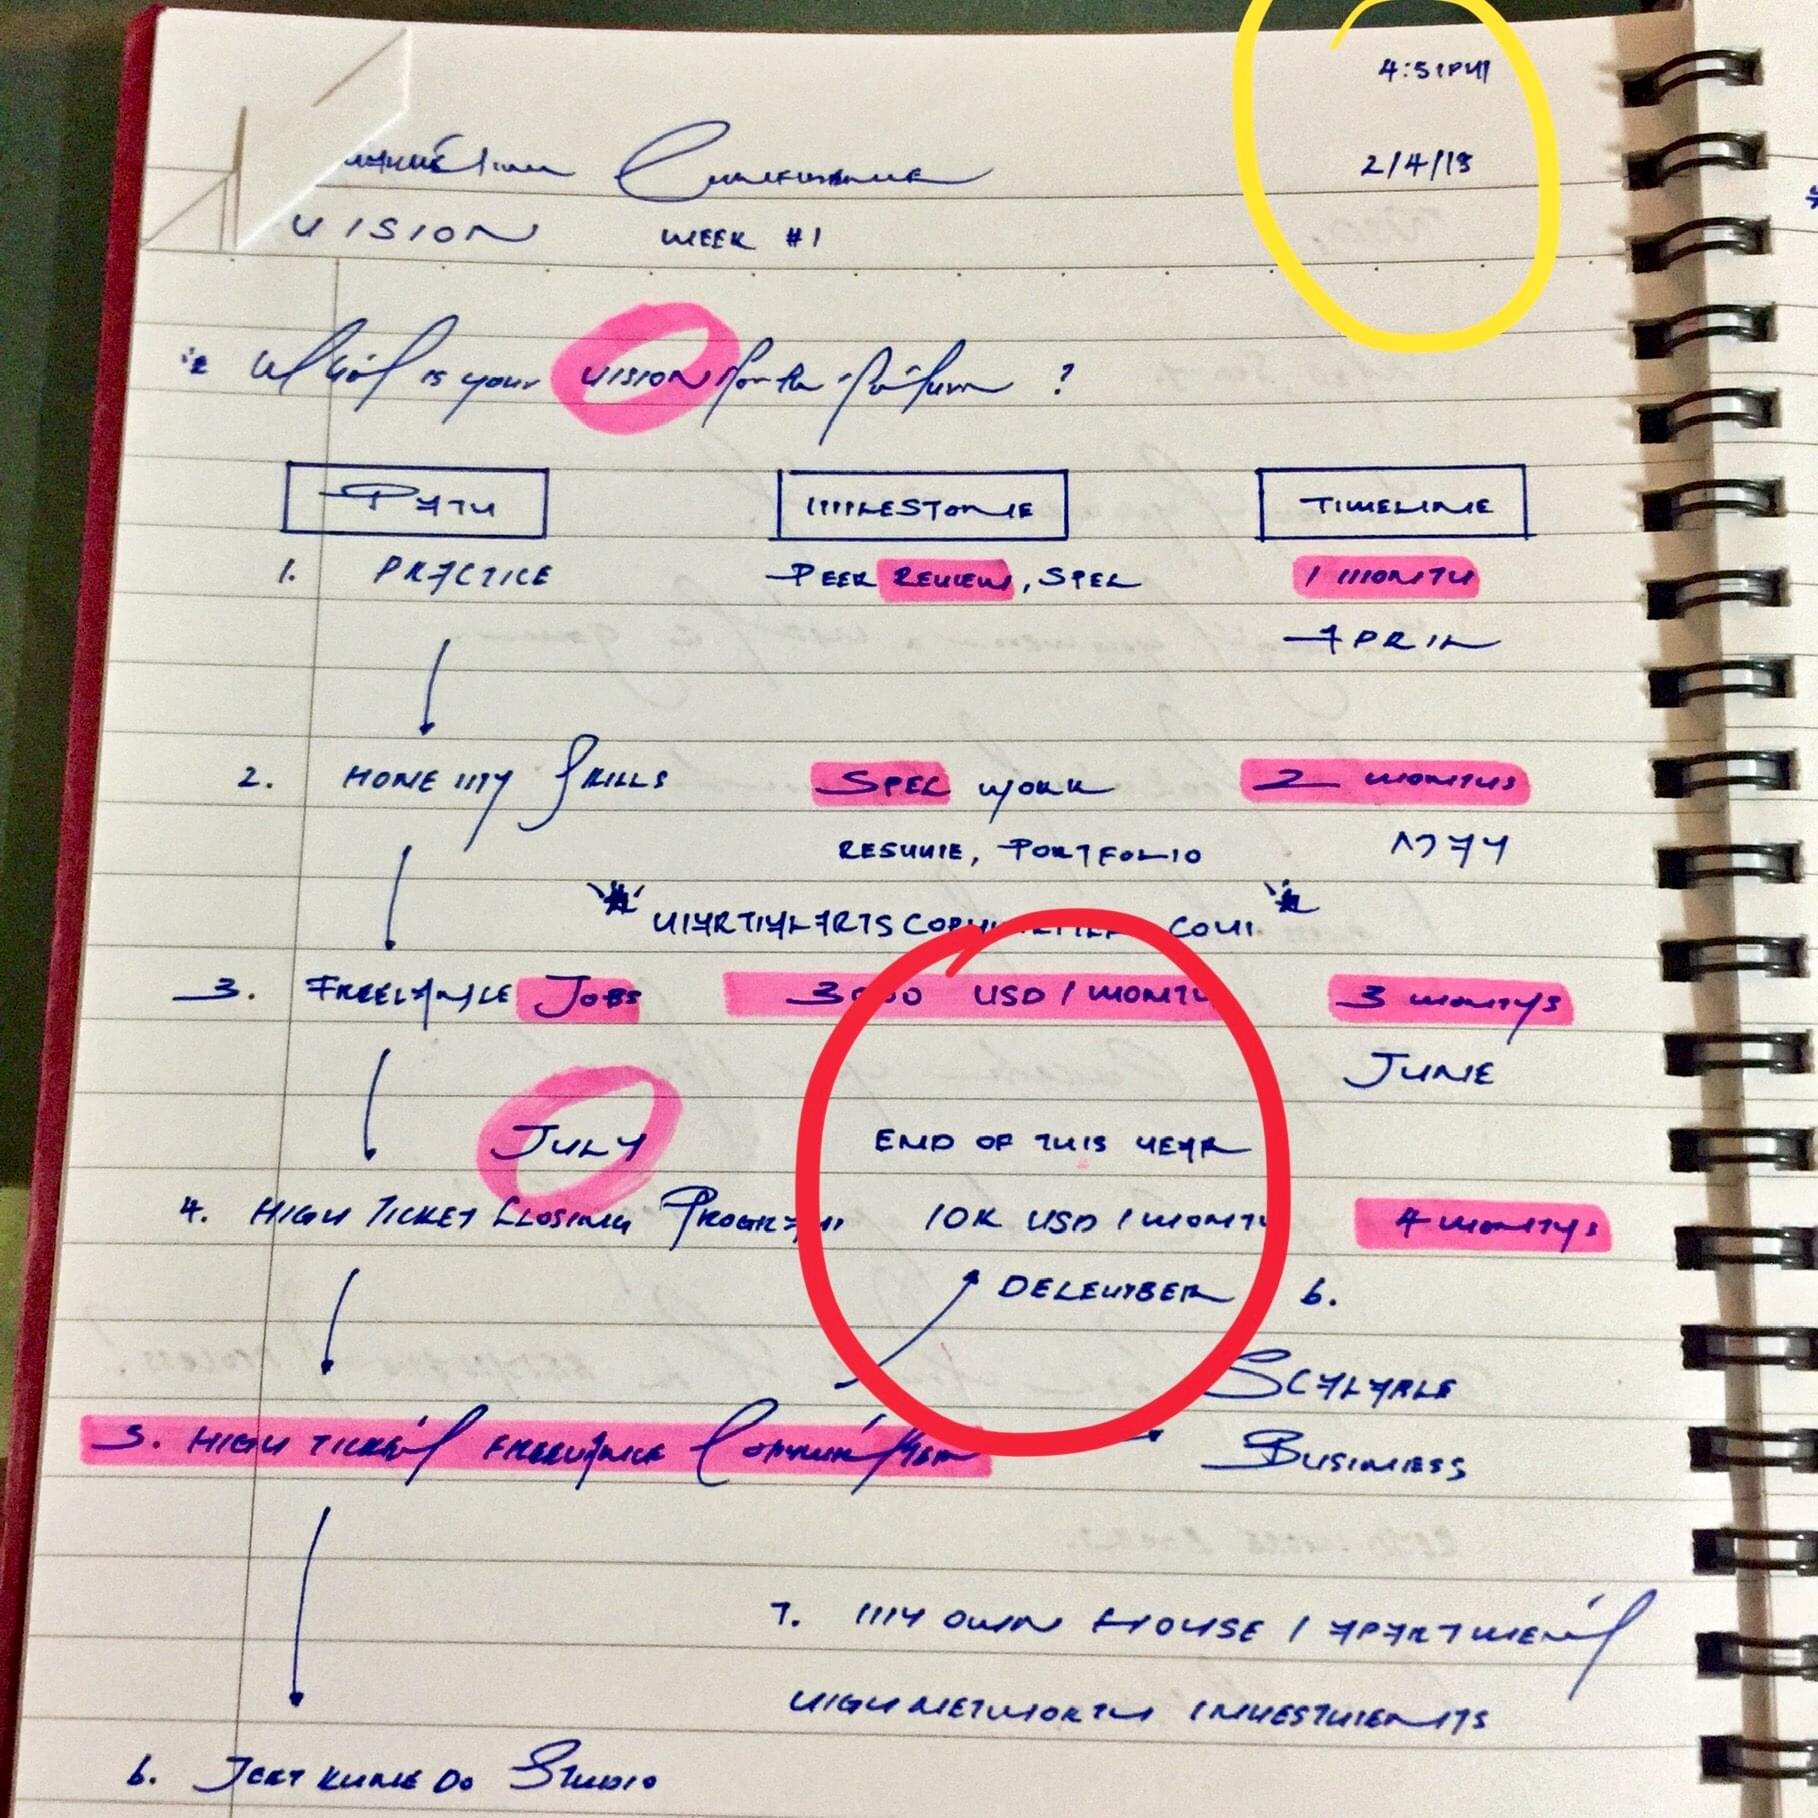 4:51PM
2/4/19
VISION WEEK #1
What is your VISION for the future ?
PATH MILESTONE TIMELINE
1. PRACTICE PEER REVIEW, SPEC 1 MONTH
APRIL
2. HONE MY SKILLS SPEC WORK 2 MONTHS
RESUME, PORTFOLIO MAY
MARTIALARTSCOPYWRITER.COM
3. FREELANCE JOBS 3000 USD / MONTH 3 MONTHS
JUNE
JULY END OF THIS YEAR
4. HIGH TICKET CLOSING PROGRAM 10K USD / MONTH 4 MONTHS
DECEMBER 6.
SCALABLE
5. HIGH TICKET FREELANCE COPYWRITER BUSINESS
7. MY OWN HOUSE / APARTMENT
HIGH NETWORTH INVESTMENTS
6. JEET KUNE DO STUDIO